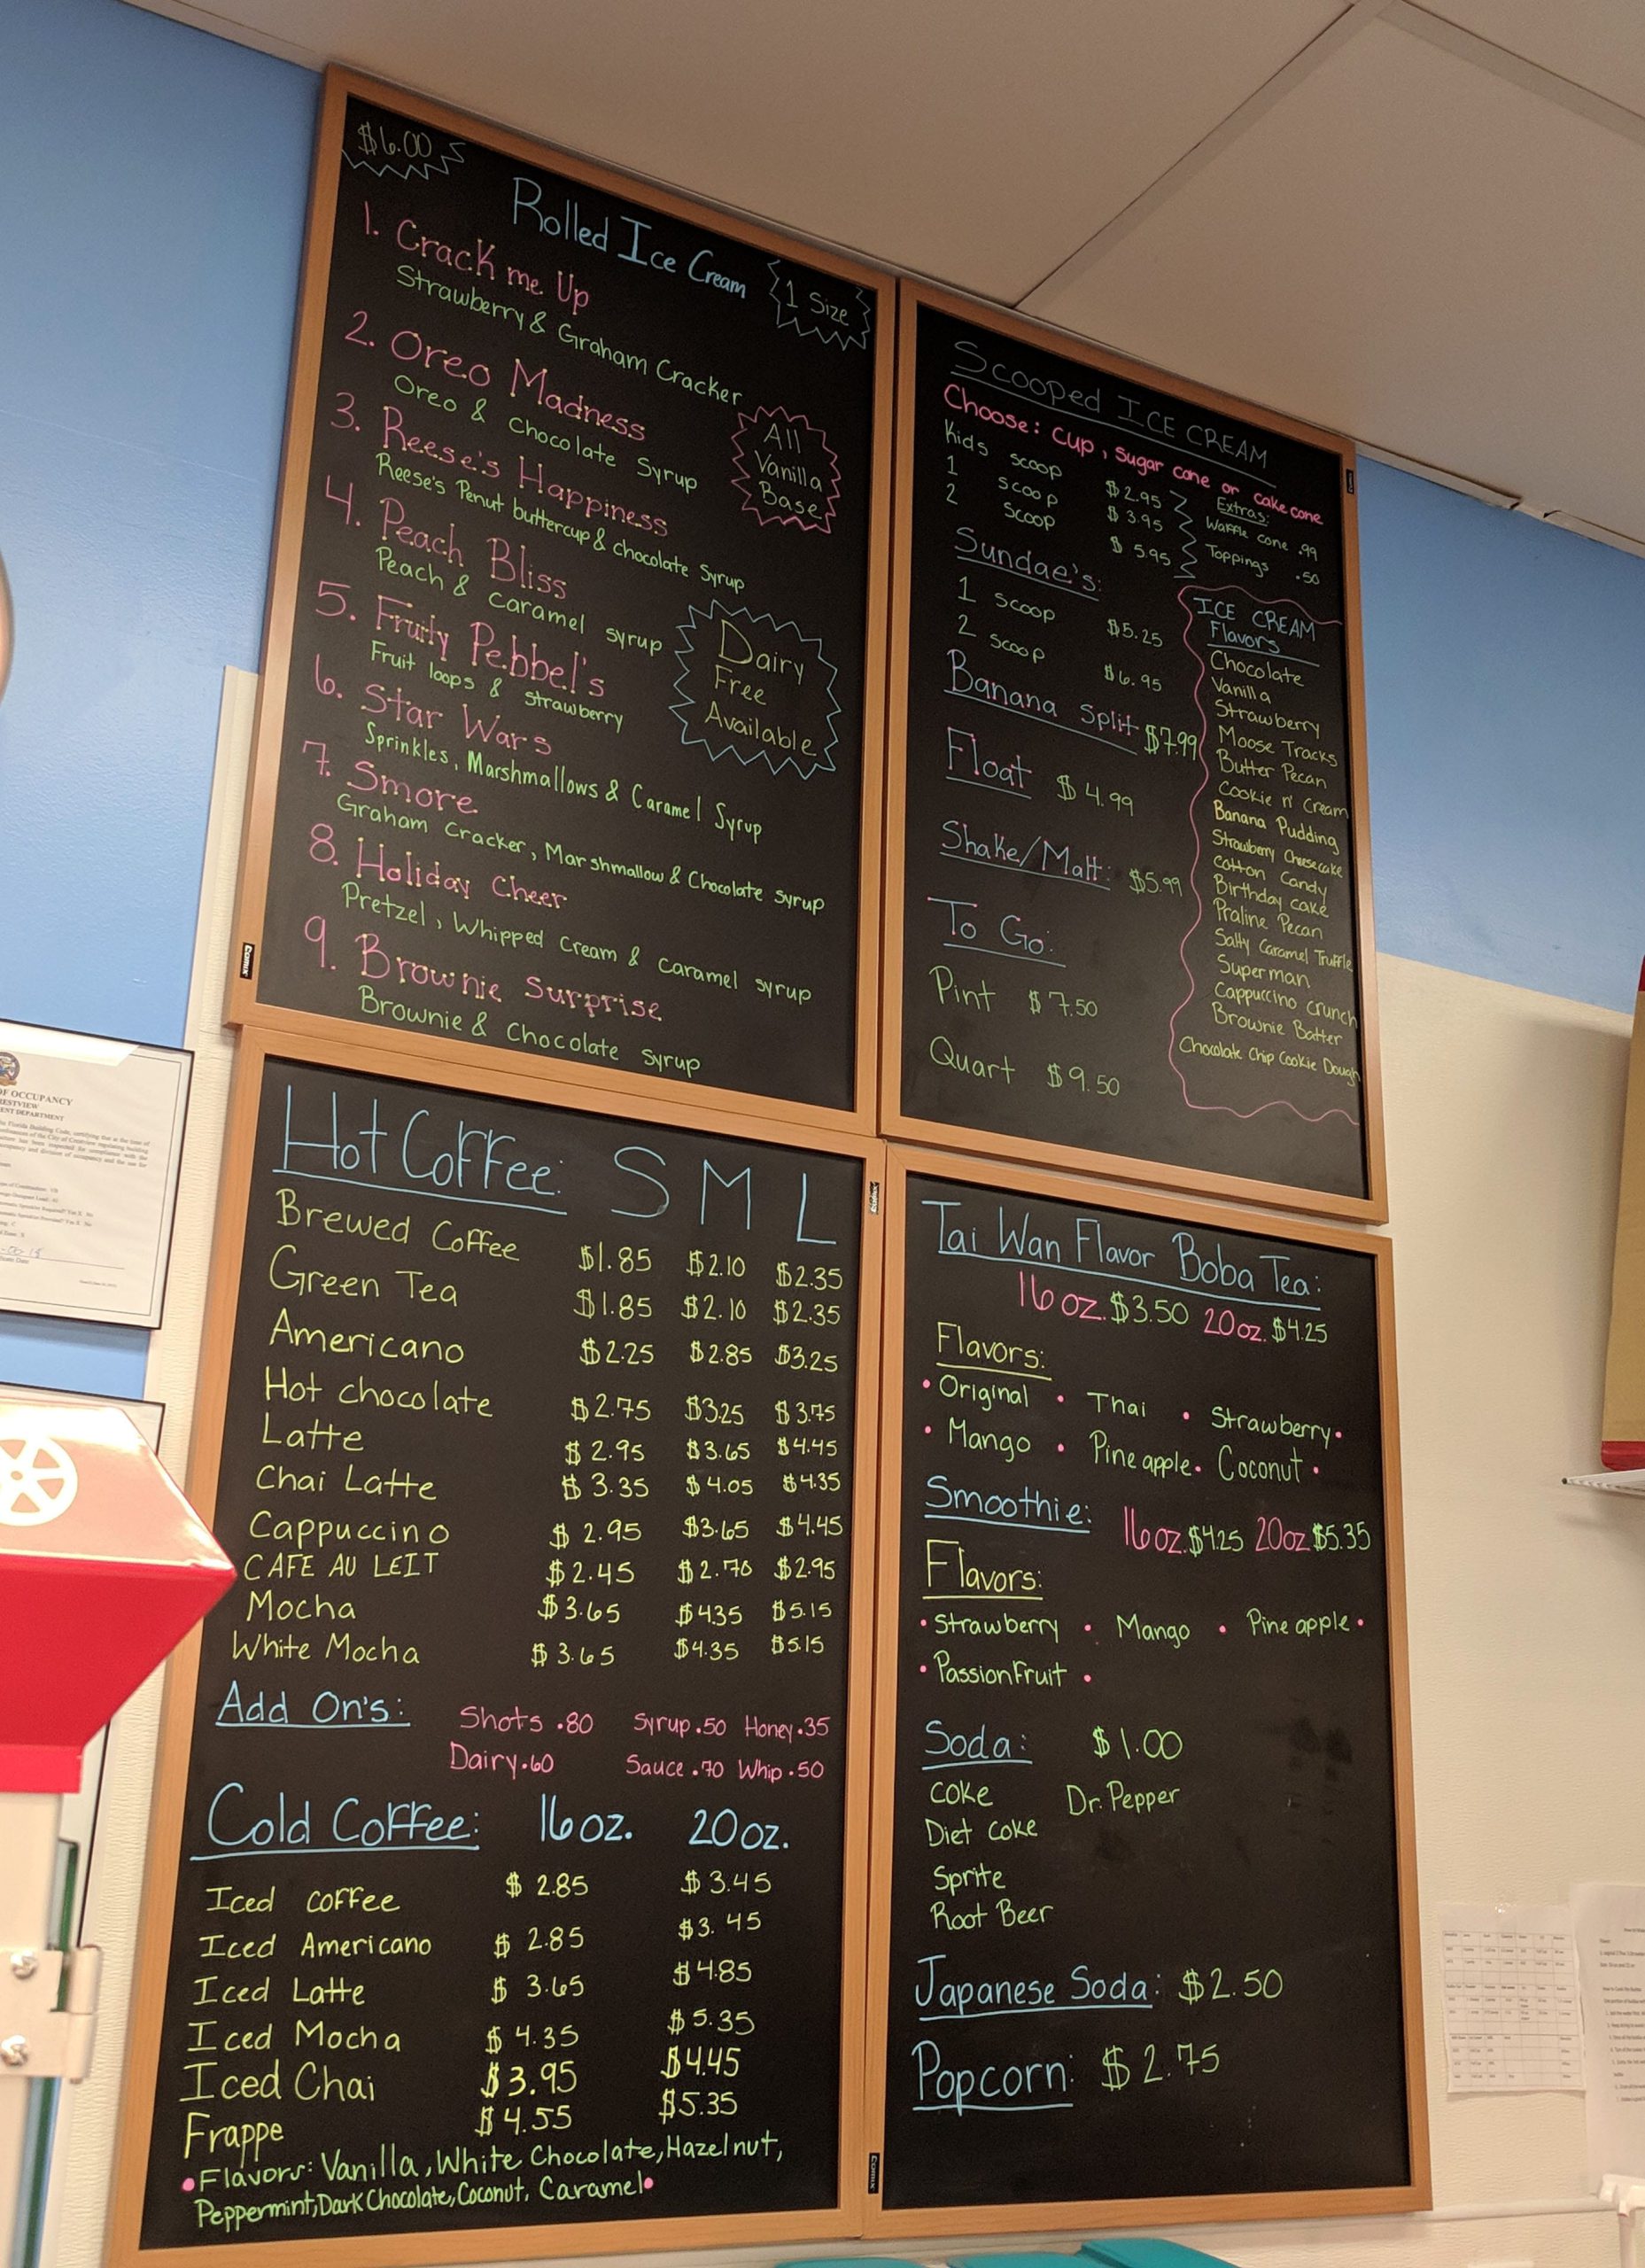 $6.00
Rolled Ice Cream
1 Size
1. Crack me Up
Strawberry & Graham Cracker
2. Oreo Madness
Oreo & Chocolate Syrup
All
Vanilla
Base
3. Reese's Happiness
Reese's Penut buttercup & chocolate Syrup
4. Peach Bliss
Peach & caramel syrup
5. Fruity Pebbel's
Fruit loops & strawberry
Dairy
Free
Available
6. Star Wars
Sprinkles, Marshmallows & Caramel Syrup
7. Smore
Graham Cracker, Marshmallow & Chocolate syrup
8. Holiday Cheer
Pretzel, Whipped cream & caramel syrup
9. Brownie Surprise
Brownie & Chocolate syrup
comix
Scooped ICE CREAM
Choose: cup, sugar cone or cake cone
Kids scoop $2.95
1 scoop $3.95
2 scoop $5.95
Extras:
Waffle cone .99
Toppings .50
Sundae's:
1 scoop $5.25
2 scoop $6.95
Banana Split $7.99
Float $4.99
Shake/Malt: $5.99
To Go:
Pint $7.50
Quart $9.50
ICE CREAM
Flavors
Chocolate
Vanilla
Strawberry
Moose Tracks
Butter Pecan
Cookie n' Cream
Banana Pudding
Strawberry Cheesecake
Cotton Candy
Birthday cake
Praline Pecan
Salty Caramel Truffle
Superman
Cappuccino crunch
Brownie Batter
Chocolate Chip Cookie Dough
Hot Coffee: S M L
Brewed Coffee $1.85 $2.10 $2.35
Green Tea $1.85 $2.10 $2.35
Americano $2.25 $2.85 $3.25
Hot chocolate $2.75 $3.25 $3.75
Latte $2.95 $3.65 $4.45
Chai Latte $3.35 $4.05 $4.35
Cappuccino $2.95 $3.65 $4.45
CAFE AU LEIT $2.45 $2.70 $2.95
Mocha $3.65 $4.35 $5.15
White Mocha $3.65 $4.35 $5.15
Add On's: Shots .80 Syrup .50 Honey .35
Dairy .60 Sauce .70 Whip .50
Cold Coffee: 16 oz. 20 oz.
Iced coffee $2.85 $3.45
Iced Americano $2.85 $3.45
Iced Latte $3.65 $4.85
Iced Mocha $4.35 $5.35
Iced Chai $3.95 $4.45
Frappe $4.55 $5.35
• Flavors: Vanilla, White Chocolate, Hazelnut,
Peppermint, Dark Chocolate, Coconut, Caramel •
comix
Tai Wan Flavor Boba Tea:
16 oz. $3.50 20 oz. $4.25
Flavors:
• Original • Thai • Strawberry •
• Mango • Pineapple • Coconut •
Smoothie: 16 oz. $4.25 20 oz $5.35
Flavors:
• Strawberry • Mango • Pineapple •
• PassionFruit •
Soda: $1.00
Coke Dr. Pepper
Diet coke
Sprite
Root Beer
Japanese Soda: $2.50
Popcorn: $2.75
OF OCCUPANCY